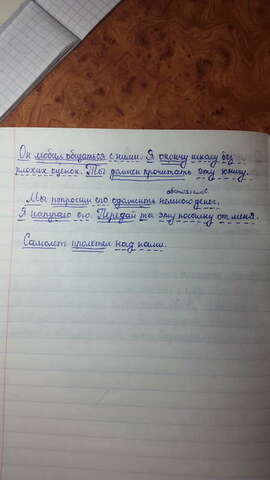 Он любил общаться с ними. Я окончу школу без
плохих оценок. Ты должен прочитать эту книгу.
Мы попросим его одолжить немного денег.
Я напугаю его. Передай эту посылку от меня.
Самолет пролетел над нами.